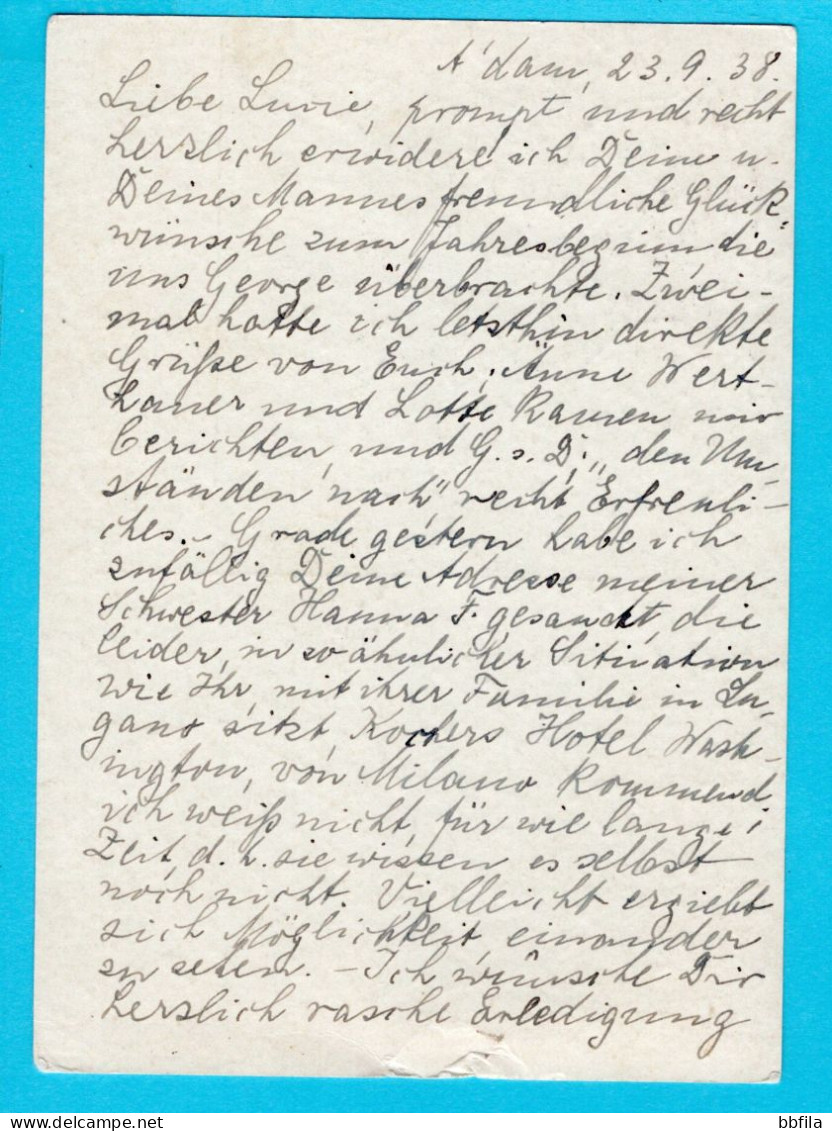 A'dam, 23.9.38.
Liebe Lucie, prompt und recht
herzlich erwidere ich Deine u.
Deines Mannes freundliche Glück-
wünsche zum Jahresbeginn die
uns George überbrachte. Zwei-
mal hatte ich letsthin direkte
Grüße von Euch, Änne Wert-
hauer und Lotte kamen mir
berichten, und G.s.D. „den Um-
ständen nach" recht Erfreuli-
ches. – Grade gestern habe ich
zufällig Deine Adresse meiner
Schwester Hanna F. gesandt, die
leider, in so ähnlicher Situation
wie Ihr, mit ihrer Familie in Lu-
gano sitzt, Kochers Hotel Wash-
ington, von Milano kommend,
ich weiß nicht, für wie lange
Zeit, d.h. sie wissen es selbst
noch nicht. Vielleicht ergiebt
sich Möglichkeit einander
zu sehen. – Ich wünsche Dir
herzlich rasche Erledigung
bbfila